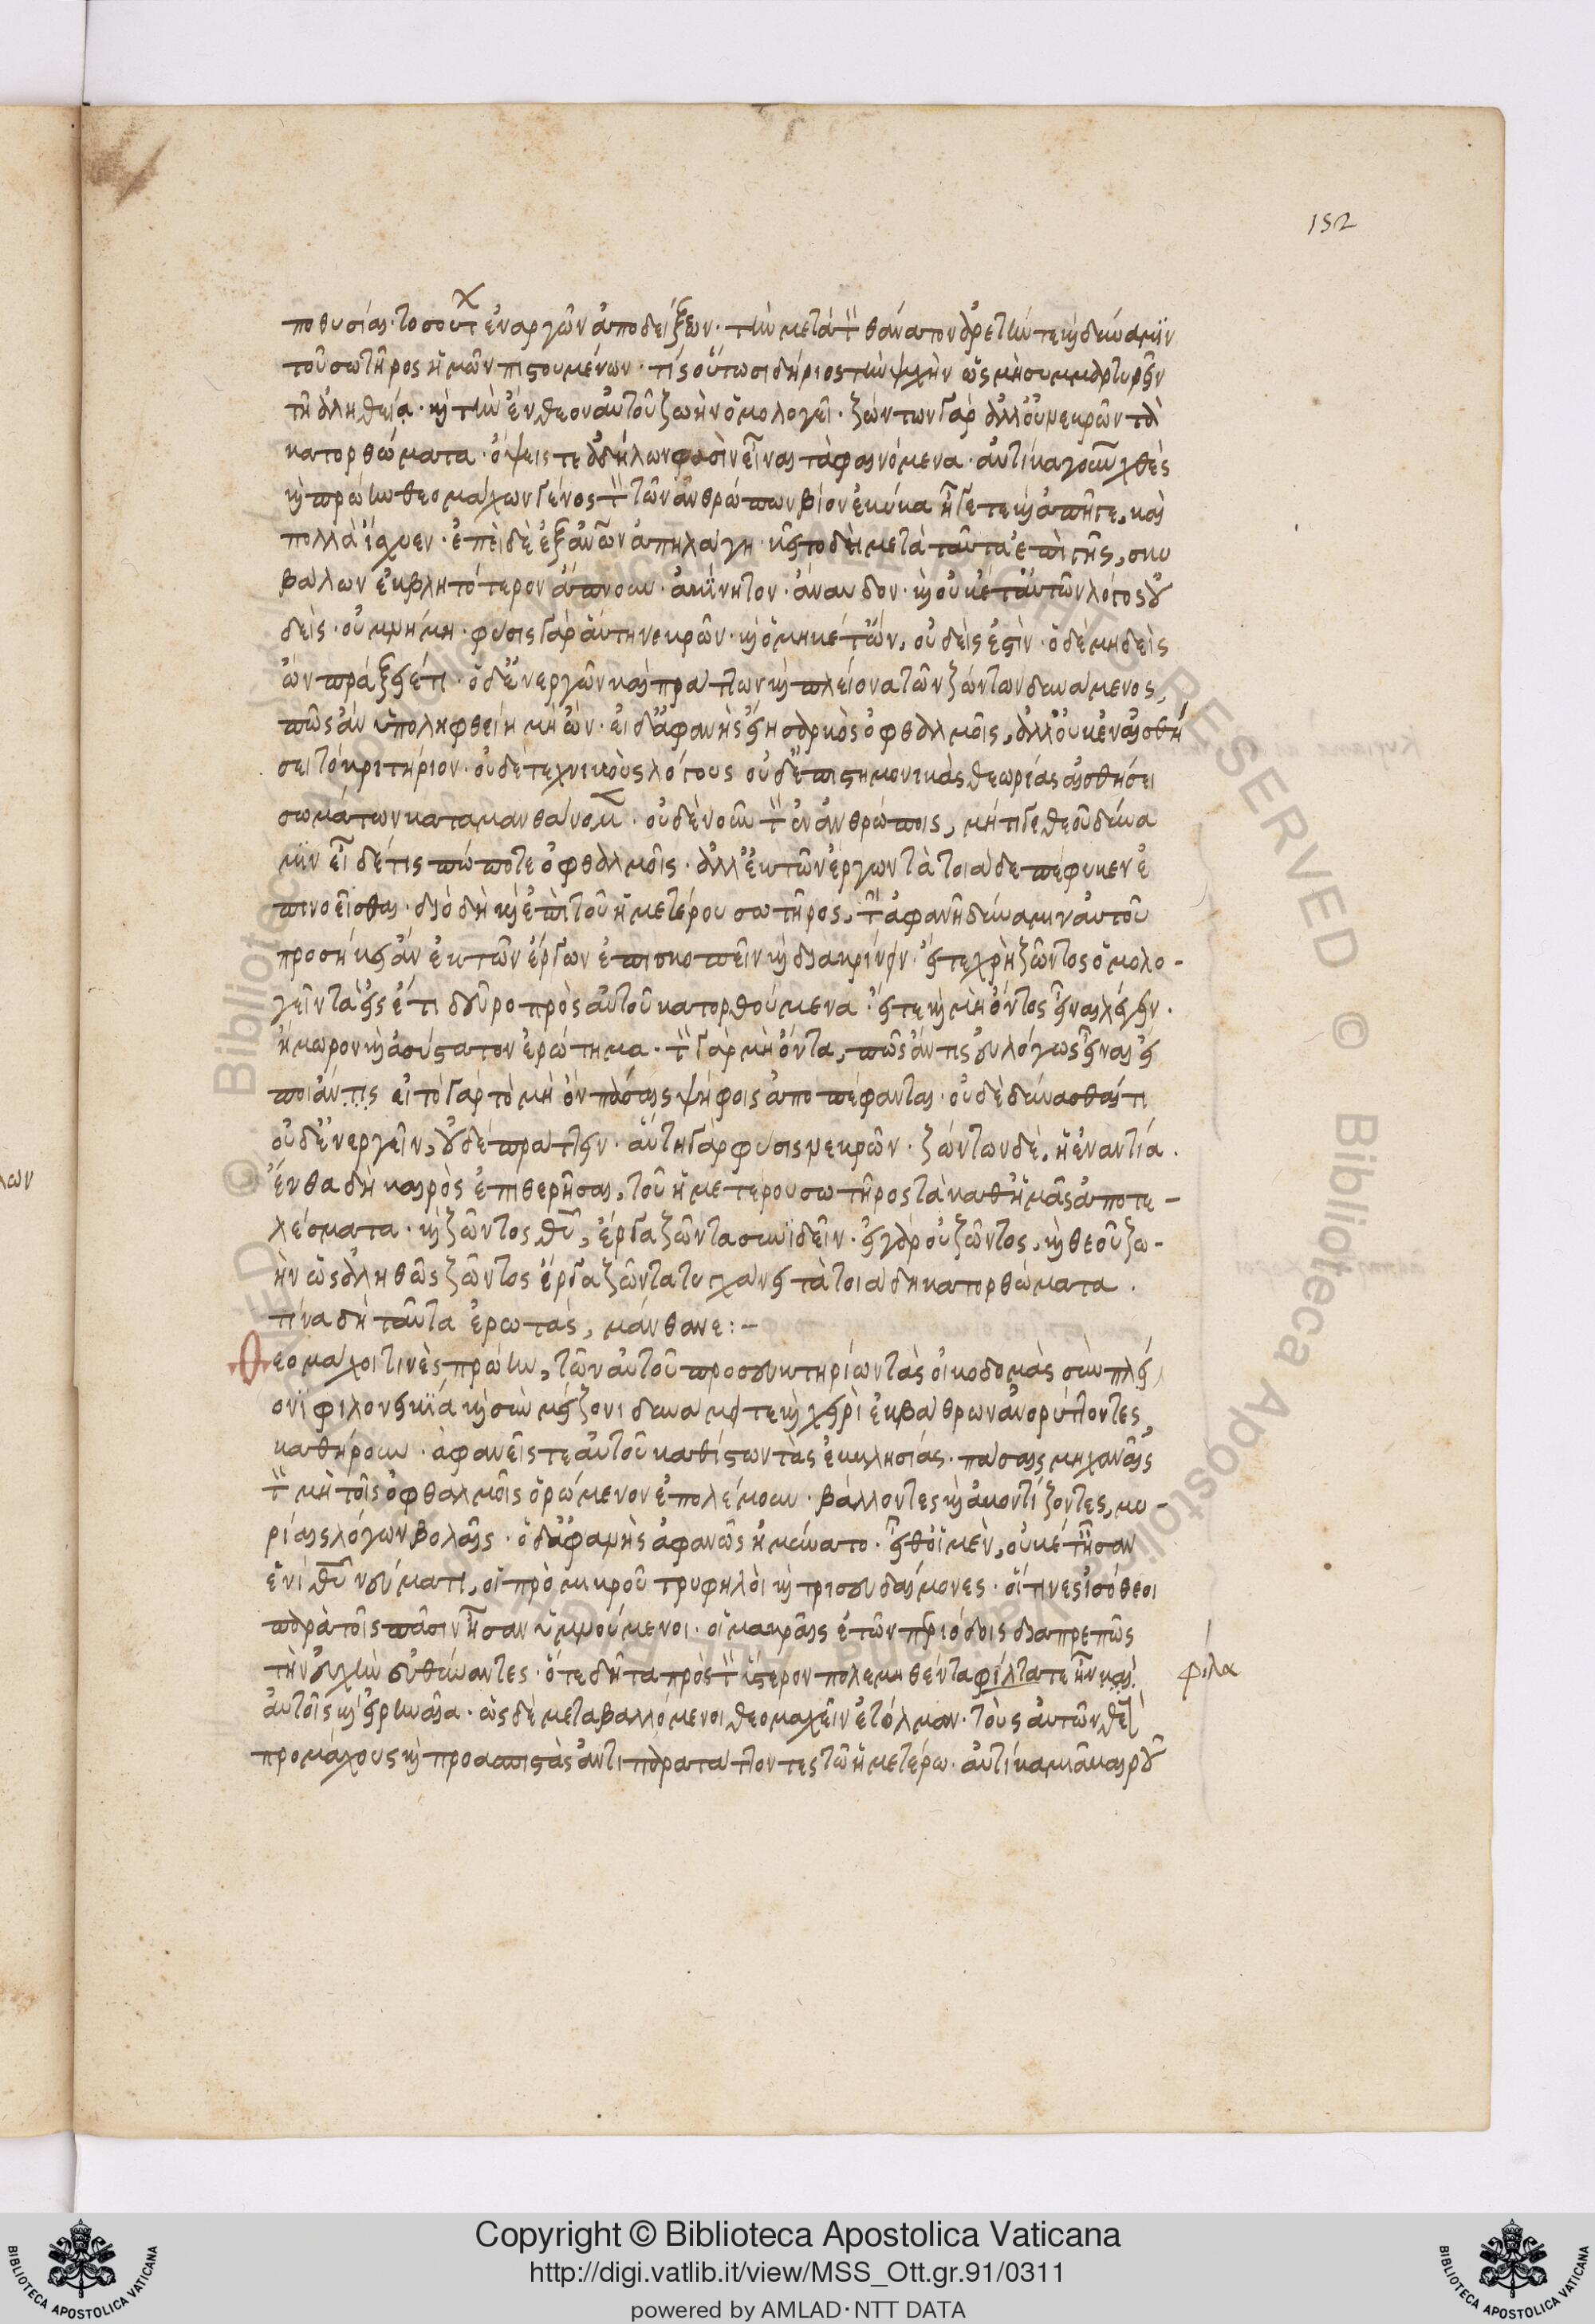 152
ποθυσίας· τοσούτ χ ἐναργῶν ἀποδείξεων· τὴν μετὰ τὸν θάνατον ἀρετήν τε καὶ δύναμϊν
τοῦ σωτῆρος ἡμῶν πιστουμένων· τίς οὕτω σιδήριος τὴν ψυχὴν ὡς μὴ συμμαρτυρεῖν
τῇ ἀληθείᾳ· καὶ τὴν ἔνθεον αὐτοῦ ζωὴν ὁμολογεῖ· ζώντων γὰρ ἀλλ' οὐ νεκρῶν τὰ
κατορθώματα· ὄψεις τε ἀδήλων φασὶν εἶναι τὰ φαινόμενα· αὐτίκα γοῦν χθὲς
καὶ πρώην θεομάχων γένος τὸν τῶν ἀνθρώπων βίον ἐκύκα ἦγέ τε καὶ ἀπῆγε, καὶ
πολλὰ ἴσχυεν· ἐπεὶ δὲ ἐξ ἀνων ἀπηλάγη· κεῖτο δὲι μετὰ ταῦτα ἐπὶ γῆς, σκυ
βάλων ἐκβλητότερον ἄπνουν· ἀκίνητον· ἄναυδον· καὶ οὐκέτ' αὐτῶν λόγος οὐ
δεὶς· οὐ μνήμη· φύσις γὰρ αὕτη νεκρῶν· καὶ ὁ μηκέτ' ὤν, οὐδεὶς ἐστὶν· ὁ δὲ μηδεὶς
ὢν πράξει ἔτι· ὁ δ' ἐνεργῶν καὶ πράττων καὶ πλείονα τῶν ζώντων δυνάμενος,
πῶς ἂν ὑποληφθείη μὴ ὢν· εἰ δ' ἀφανὴς εἴη σαρκὸς ὀφθαλμοῖς, ἀλλ' οὐκ ἐν αἰσθή
σει τὸ κριτήριον· οὐδὲ τεχνικοὺς λόγους οὐδ' ἐπιστημονικὰς θεωρίας αἰσθήσει
σωμάτων καταμανθάνομ· οὐδὲ νοῦν τὸν ἐν ἀνθρώποις, μήτι γε θεοῦ δύνα
μϊν εἶδέ τις πώποτε ὀφθαλμοῖς· ἀλλ' ἐκ τῶν ἔργων τὰ τοιάδε πέφυκεν ἐ
πινοεῖσθαι· διὸ δὴ καὶ ἐπὶ τοῦ ἡμετέρου σωτῆρος, τὴν ἀφανῆ δύναμιν αὐτοῦ
προσήκει ἂν ἐκ τῶν ἔργων ἐπισκοπεῖν καὶ διακρίνειν· εἴτε χρὴ ζῶντος ὁμολο-
γεῖν τὰ εἰς ἔτι δεῦρο πρὸς αὐτοῦ κατορθούμενα· εἴτε καὶ μὴ ὄντος εἶναι λέγειν·
ἢ μωρὸν καὶ ἀσύστατον ἐρώτημα· τὸν γὰρ μὴ ὄντα, πῶς ἄν τις εὐλόγως εἶναι εἴ
ποι ἄν τις εἰ τὸ γὰρ τὸ μὴ ὂν πάσαις ψήφοις ἀποπέφανται· οὐδὲ δύνασθαί τι
οὐδ' ἐνεργεῖν, οὐδὲ πράττειν· αὕτη γὰρ φύσις νεκρῶν· ζώντων δὲ, ἡ ἐναντία·
ἔνθα δὴ καιρὸς ἐπιθερῆσαι, τοῦ ἡμετέρου σωτῆρος τὰ καθ' ἡμᾶς ἀποτε-
λέσματα· καὶ ζῶντος θυ, ἔργα ζῶντα συνϊδεῖν· εἰ γὰρ οὐ ζῶντος, καὶ θεοῦ ζω-
ὴν ὡς ἀληθῶς ζῶντος ἔργα ζῶντα τυγχάνει τὰ τοιάδη κατορθώματα·
τίνα δὴ ταῦτα ἐρωτᾶς, μάνθανε:-
Θεομάχοι τινὲς πρώην, τῶν αὐτοῦ προσευκτηρίων τὰς οἰκοδομὰς σὺν πλεί
ονι φιλονεικίᾳ καὶ σὺν μείζονι δυνάμει τε καὶ χειρὶ ἐκ βάθρων ἀνορύττοντες,
καθήρουν· ἀφανεῖς τε αὐτοῦ καθίστων τὰς ἐκκλησίας· πάσαις μηχαναῖς
τὸν μὴ τοῖς ὀφθαλμοῖς ὁρώμενον ἐπολέμουν· βάλλοντες καὶ ἀκοντίζοντες, μυ-
ρίαις λόγων βολαῖς· ὁ δ' ἀφανὴς ἀφανῶς ἠμύνατο· εἶθ' οἱ μὲν, οὐκέτ' ἦσαν
ἑνὶ θυ νεύματι, οἱ πρὸ μικροῦ τρυφηλοὶ καὶ τρισευδαίμονες· οἵτινες ἰσόθεοι
παρὰ τοῖς πᾶσιν ἦσαν ὑμνούμενοι· οἱ μακραῖς ἐτῶν περιόδοις διαπρεπῶς
τὴν ἀρχὴν εὐθύναντες· ὅτε δῆτα πρὸς τὸν ὕστερον πολεμηθέντα φίλτατε ἦν καὶ
αὐτοῖς καὶ εἰρηναῖα· ὡς δὲ μεταβαλλόμενοι θεομαχεῖν ἐτόλμων· τοὺς αὐτῶν θε
προμάχους καὶ προασπιστὰς ἀντιπαρατάττοντες τῷ ἡμετέρῳ· αὐτίκα μιᾶ καιροῦ
φίλα
Copyright © Biblioteca Apostolica Vaticana
http://digi.vatlib.it/view/MSS_Ott.gr.91/0311
powered by AMLAD·NTT DATA
BIBLIOTECA APOSTOLICA VATICANA
BIBLIOTECA APOSTOLICA VATICANA